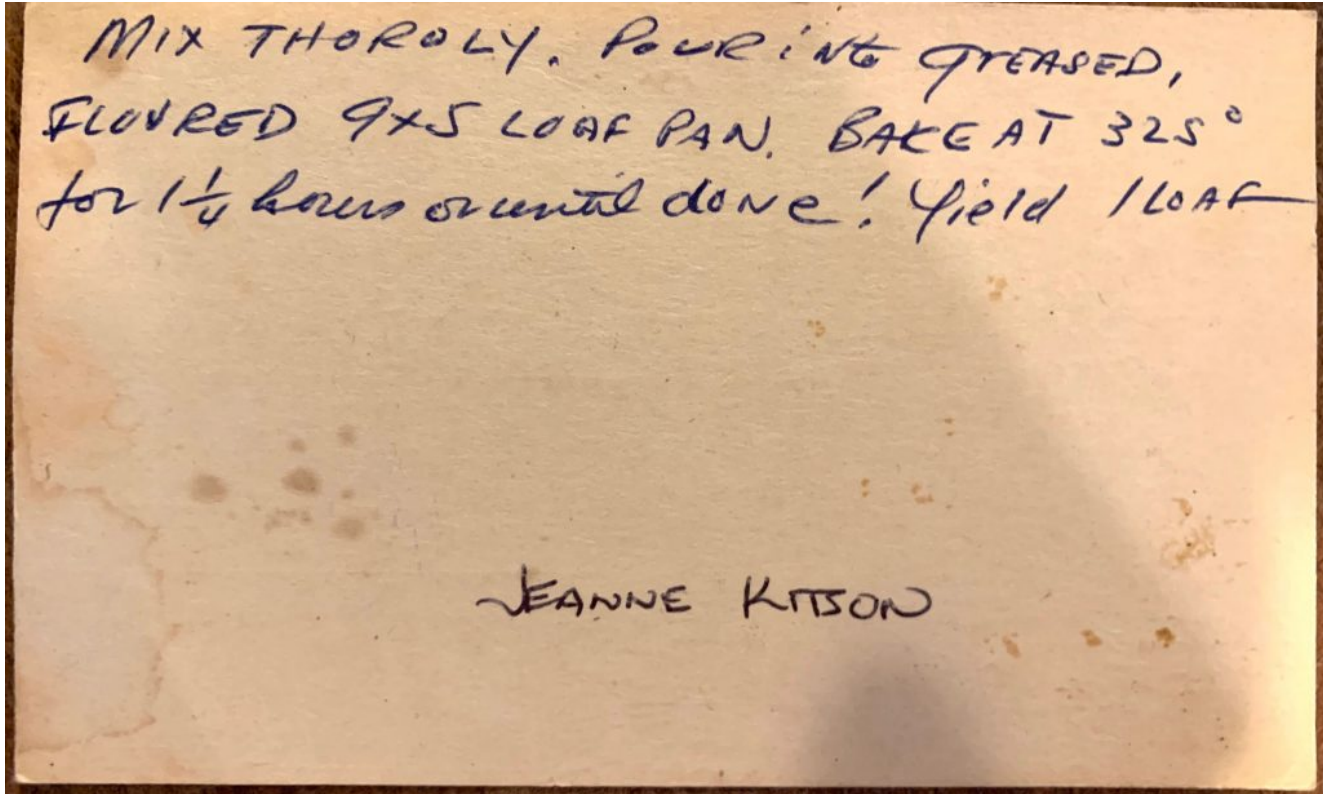 MIX THOROLY. POUR iNto GREASED,
FLOURED 9x5 LOAF PAN. BAKE AT 325°
for 1 1/4 hours or until doNe! Yield 1 LOAF
JEANNE KITSON